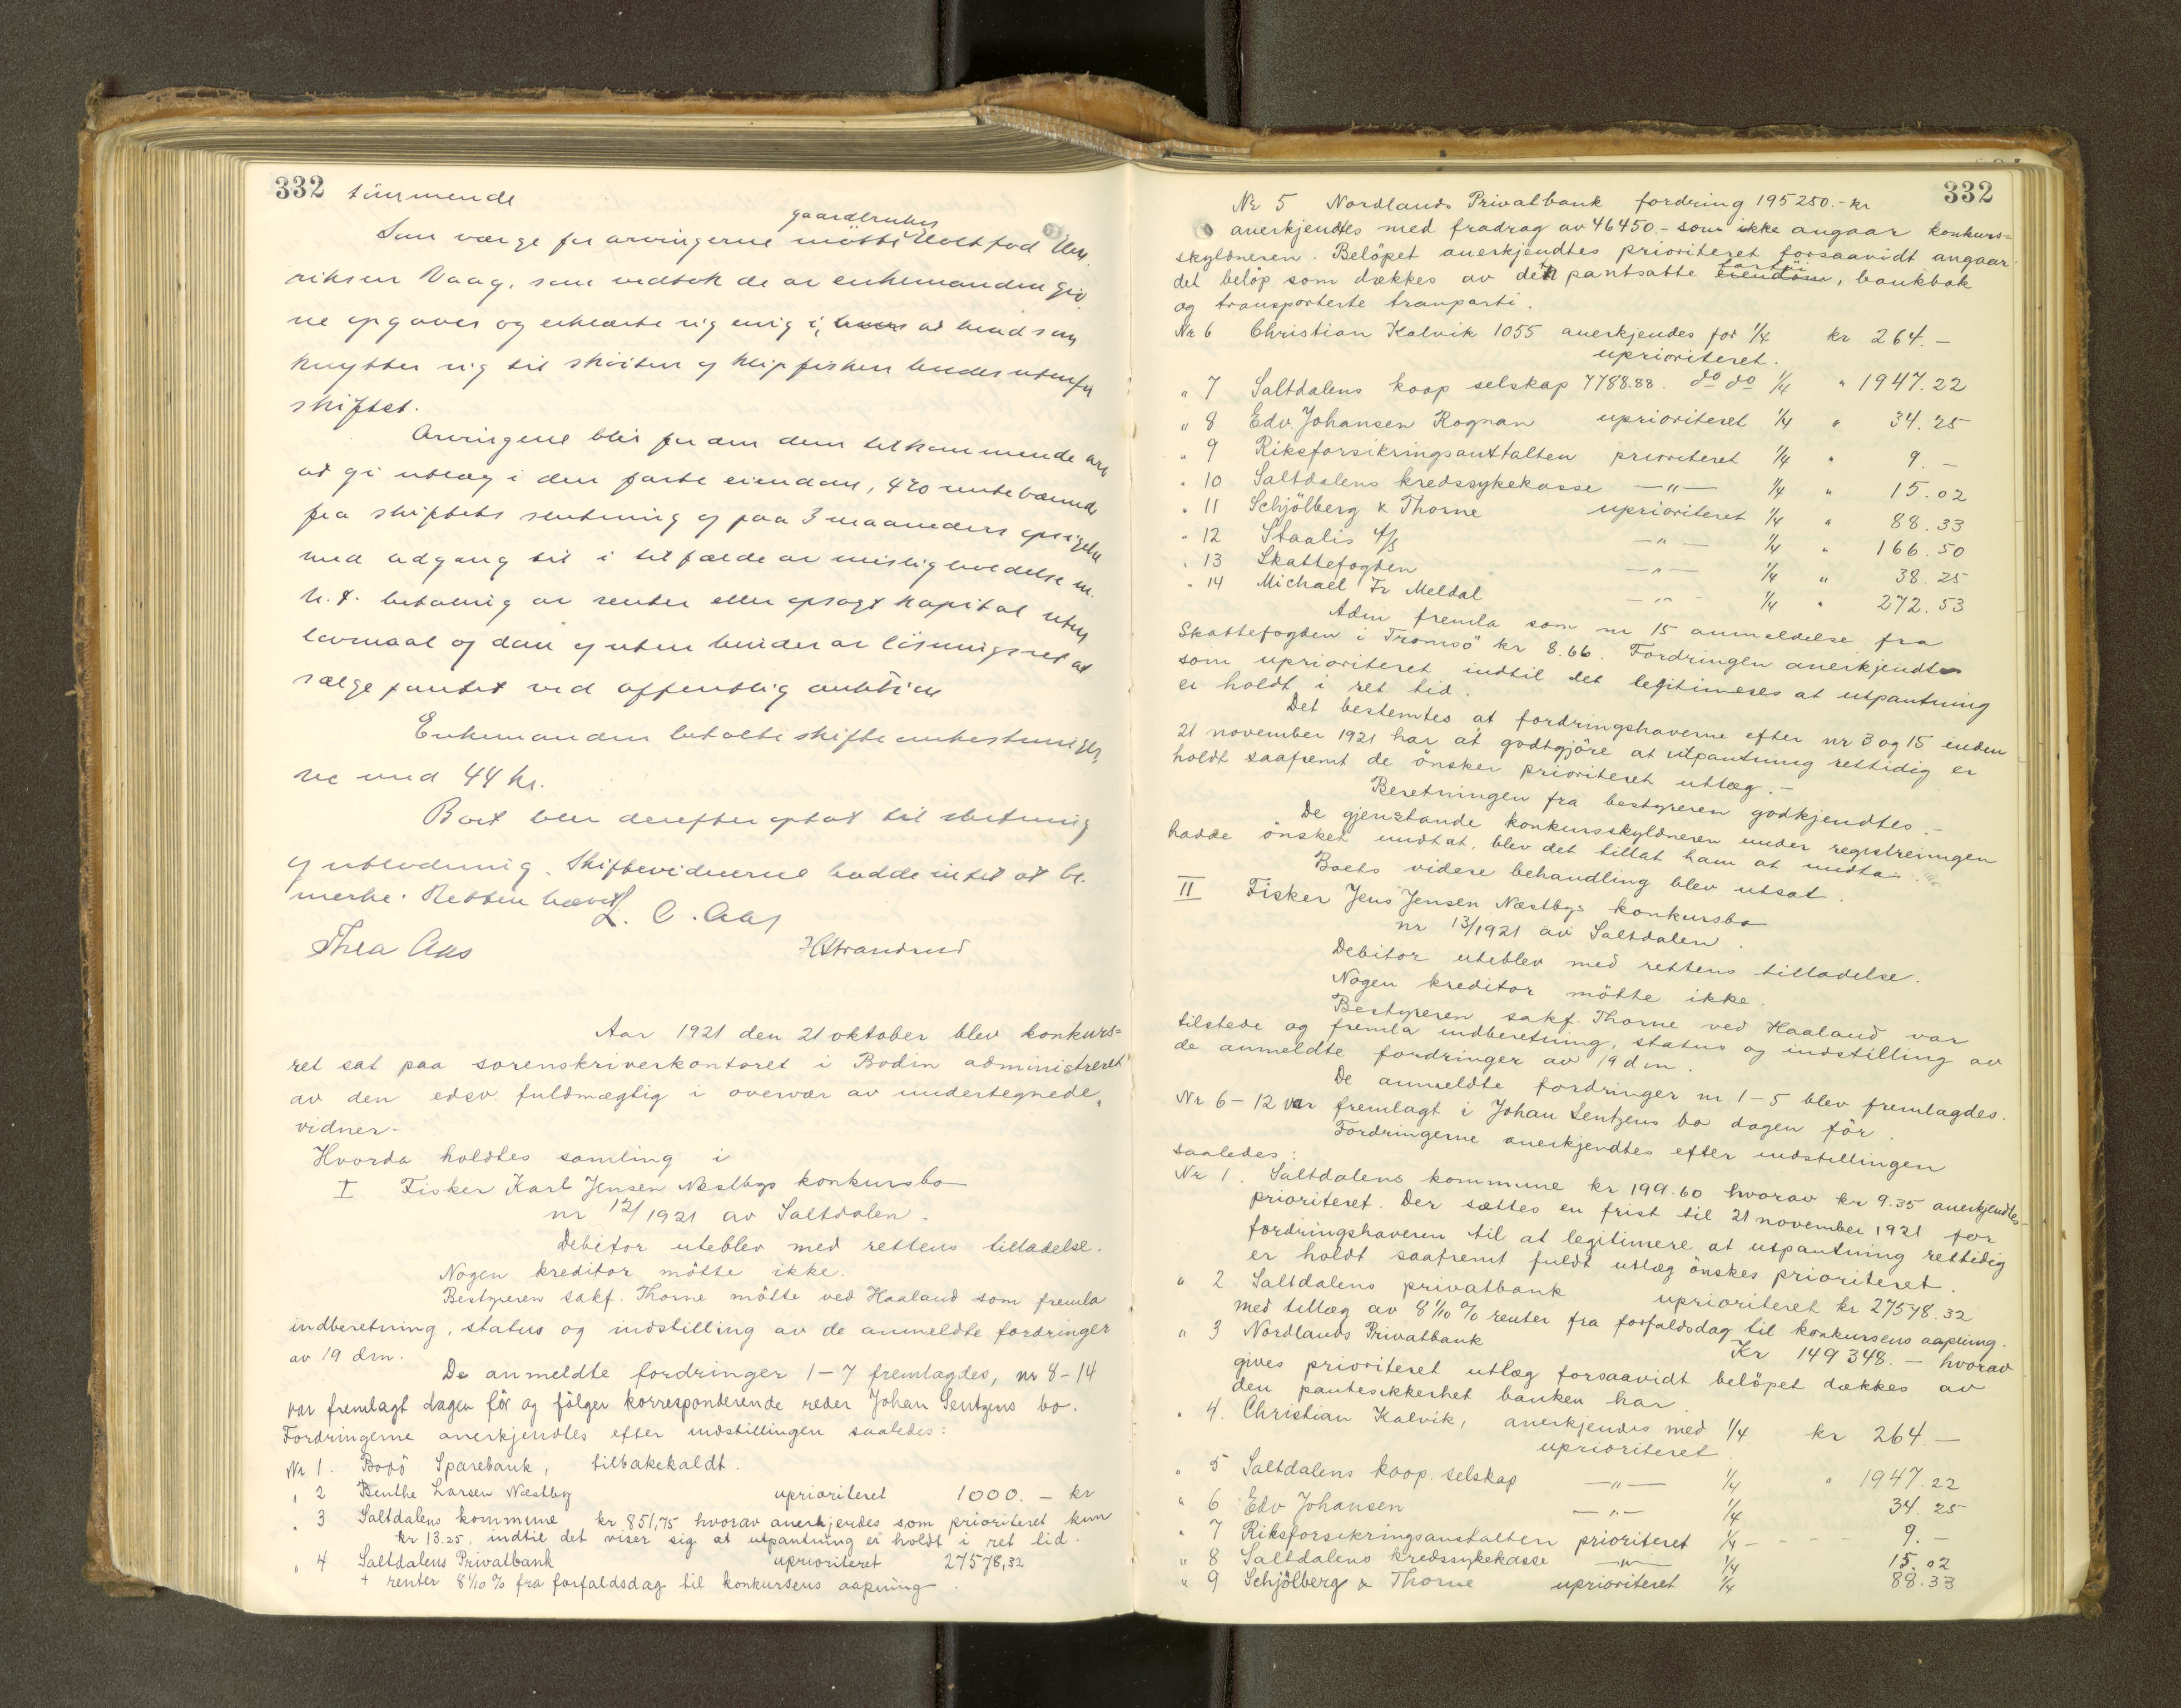 332 tömmende
gaardbruker
Som værge for arvingerne mötte Hen
riksen Vaag, som vedtok de av enkemanden giv
ne opgaver og erklærte sig enig i, at hvad som
knytter sig til sköiten og klipfisken holdes utenfor
skiftet.
Arvingerne blir for den dem tilkommende arv
at gi utlæg i den faste eiendom, 4% rentebærende
fra skiftets slutning og paa 3 maaneders opsigelse
med adgang til i tilfælde av misligholdelse m.
h.t. betaling av renter eller opsagt kapital uten
lovmaal og dom og uten hinder av lösningsret at
sælge pantet ved offentlig auktion
Enkemanden betalte skifteomkostninger
ne med 44 kr.
Boet blev derefter optat til slutning
og utlodning. Skiftevidnerne hadde intet at be
merke. Retten hævet
L. C. Aas
Thea Aas HStrandrud
Aar 1921 den 21 oktober blev konkurs=
ret sat paa sorenskriverkontoret i Bodin administreret
av den edsv. fuldmægtig i overvær av undertegnede
vidner.
Hvorda holdtes samling i
I Fisker Karl Jensen Næstbys konkursbo
nr 12/1921 av Saltdalen.
Debitor uteblev med rettens tilladelse.
Nogen kreditor mötte ikke.
Bestyreren sakf. Thorne mötte ved Haaland som fremla
indberetning, status og indstilling av de anmeldte fordringer
av 19 dm.
De anmeldte fordringer 1-7 fremlagdes, nr 8-14
var fremlagt dagen för og fölger korresponderende reder Johan Sentzens bo.
Fordringerne anerkjendtes efter indstillingen saaledes:
Nr 1. Bodö Sparebank, tilbakekaldt.
" 2 Benthe Larsen Næstby uprioriteret 1000.- kr
" 3 Saltdalens kommune kr 851,75 hvorav anerkjendes som prioriteret kun
kr 13.25, indtil det viser sig at utpantning er holdt i ret tid.
" 4 Saltdalens Privatbank uprioriteret 27578,32
+ renter 8 1/10 % fra forfaldsdag til konkursens aapning
332
Nr 5 Nordlands Privatbank fordring 195250.- kr
anerkjendtes med fradrag av 46450.- som ikke angaar konkurs=
skyldneren. Belöpet anerkjendtes prioriteret forsaavidt angaar
fartöi
det belöp som dækkes av den pantsatte eiendom, bankbok
og transporterte tranparti.
Nr 6 Christian Kalvik 1055 anerkjendes for 1/4 kr 264.-
uprioriteret.
" 7 Saltdalens koop selskap 7788.88. do do 1/4 " 1947.22
" 8 Edv. Johansen Rognan uprioriteret 1/4 " 34.25
" 9 Riksforsikringsanstalten prioriteret 1/4 " 9.-
" 10 Saltdalens kredssykekasse -"- 1/4 " 15.02
" 11 Schjölberg & Thorne uprioriteret 1/4 " 88.33
" 12 Staalis A/S -"- 1/4 " 166.50
" 13 Skattefogden -"- 1/4 " 38.25
" 14 Michael Fr Meldal -"- 1/4 " 272.53
Adm fremla som nr 15 anmeldelse fra
Skattefogden i Tromsö kr 8.66. Fordringen anerkjendtes
som uprioriteret indtil det legitimeres at utpantning
er holdt i ret tid.
Det bestemtes at fordringshaverne efter nr 3 og 15 inden
21 november 1921 har at godtgjöre at utpantning rettidig er
holdt saafremt de önsker prioriteret utlæg.-
Beretningen fra bestyreren godkjendtes.-
De gjenstande konkursskyldneren under registreringen
hadde önsket undtat, blev det tillat ham at undta.
Boets videre behandling blev utsat.
II Fisker Jens Jensen Næstbys konkursbo
nr 13/1921 av Saltdalen.
Debitor uteblev med rettens tilladelse.
Nogen kreditor mötte ikke.
Bestyreren sakf. Thorne ved Haaland var
tilstede og fremla indberetning, status og indstilling av
de anmeldte fordringer av 19 dm.
De anmeldte fordringer nr 1-5 blev fremlagdes.
Nr 6-12 var fremlagt i Johan Sentzens bo dagen för.
Fordringerne anerkjendtes efter indstillingen
saaledes:
Nr 1. Saltdalens kommune kr 199.60 hvorav kr 9.35 anerkjendtes
prioriteret. Der sættes en frist til 21 november 1921 for
fordringshaveren til at legitimere at utpantning rettidig
er holdt saafremt fuldt utlæg önskes prioriteret.
" 2 Saltdalens privatbank uprioriteret kr 27578.32
med tillæg av 8 1/10 % renter fra forfaldsdag til konkursens aapning.
" 3 Nordlands Privatbank Kr 149348.- hvorav
gives prioriteret utlæg forsaavidt belöpet dækkes av
den pantesikkerhet banken har.
" 4. Christian Kalvik, anerkjendes med 1/4 kr 264.-
uprioriteret
" 5 Saltdalens koop. selskap -"- 1/4 " 1947.22
" 6 Edv Johansen -"- 1/4 34.25
" 7 Riksforsikringsanstalten prioriteret 1/4 - - - 9.-
" 8 Saltdalens kredssykekasse -"- 1/4 15.02
" 9 Schjölberg & Thorne uprioriteret 1/4 88.33